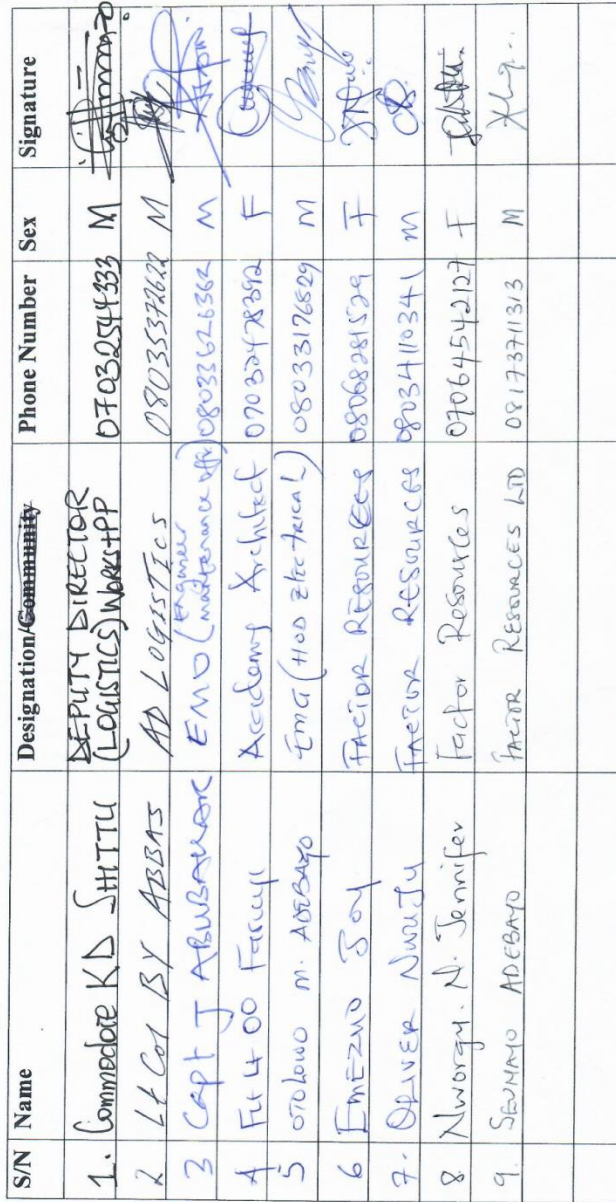 S/N Name Designation/Community Phone Number Sex Signature
1. Commodore KD SHITTU DEPUTY DIRECTOR (LOGISTICS) WORKS+PP 07032544333 M
2 Lt Col BY ABBAS AD LOGISTICS 08035372622 M
3 Capt J ABUBAKAR EMO (Engineer maintenance offr) 08033626362 M
4 Flt Lt OO Academy Architect 07032478392 F
5 OTOLOWO M. ADEBAYO EMG (HOD Electrical) 08033176529 M
6 EMEZUO Joy FACTOR RESOURCES 08068281529 F
7. OLIVER Nwuju FACTOR RESOURCES 08034110341 m
8. Nworgy. N. Jennifer Factor Resources 07064542127 F
9. SEUNMAYO ADEBAYO FACTOR RESOURCES LTD 08173711313 M